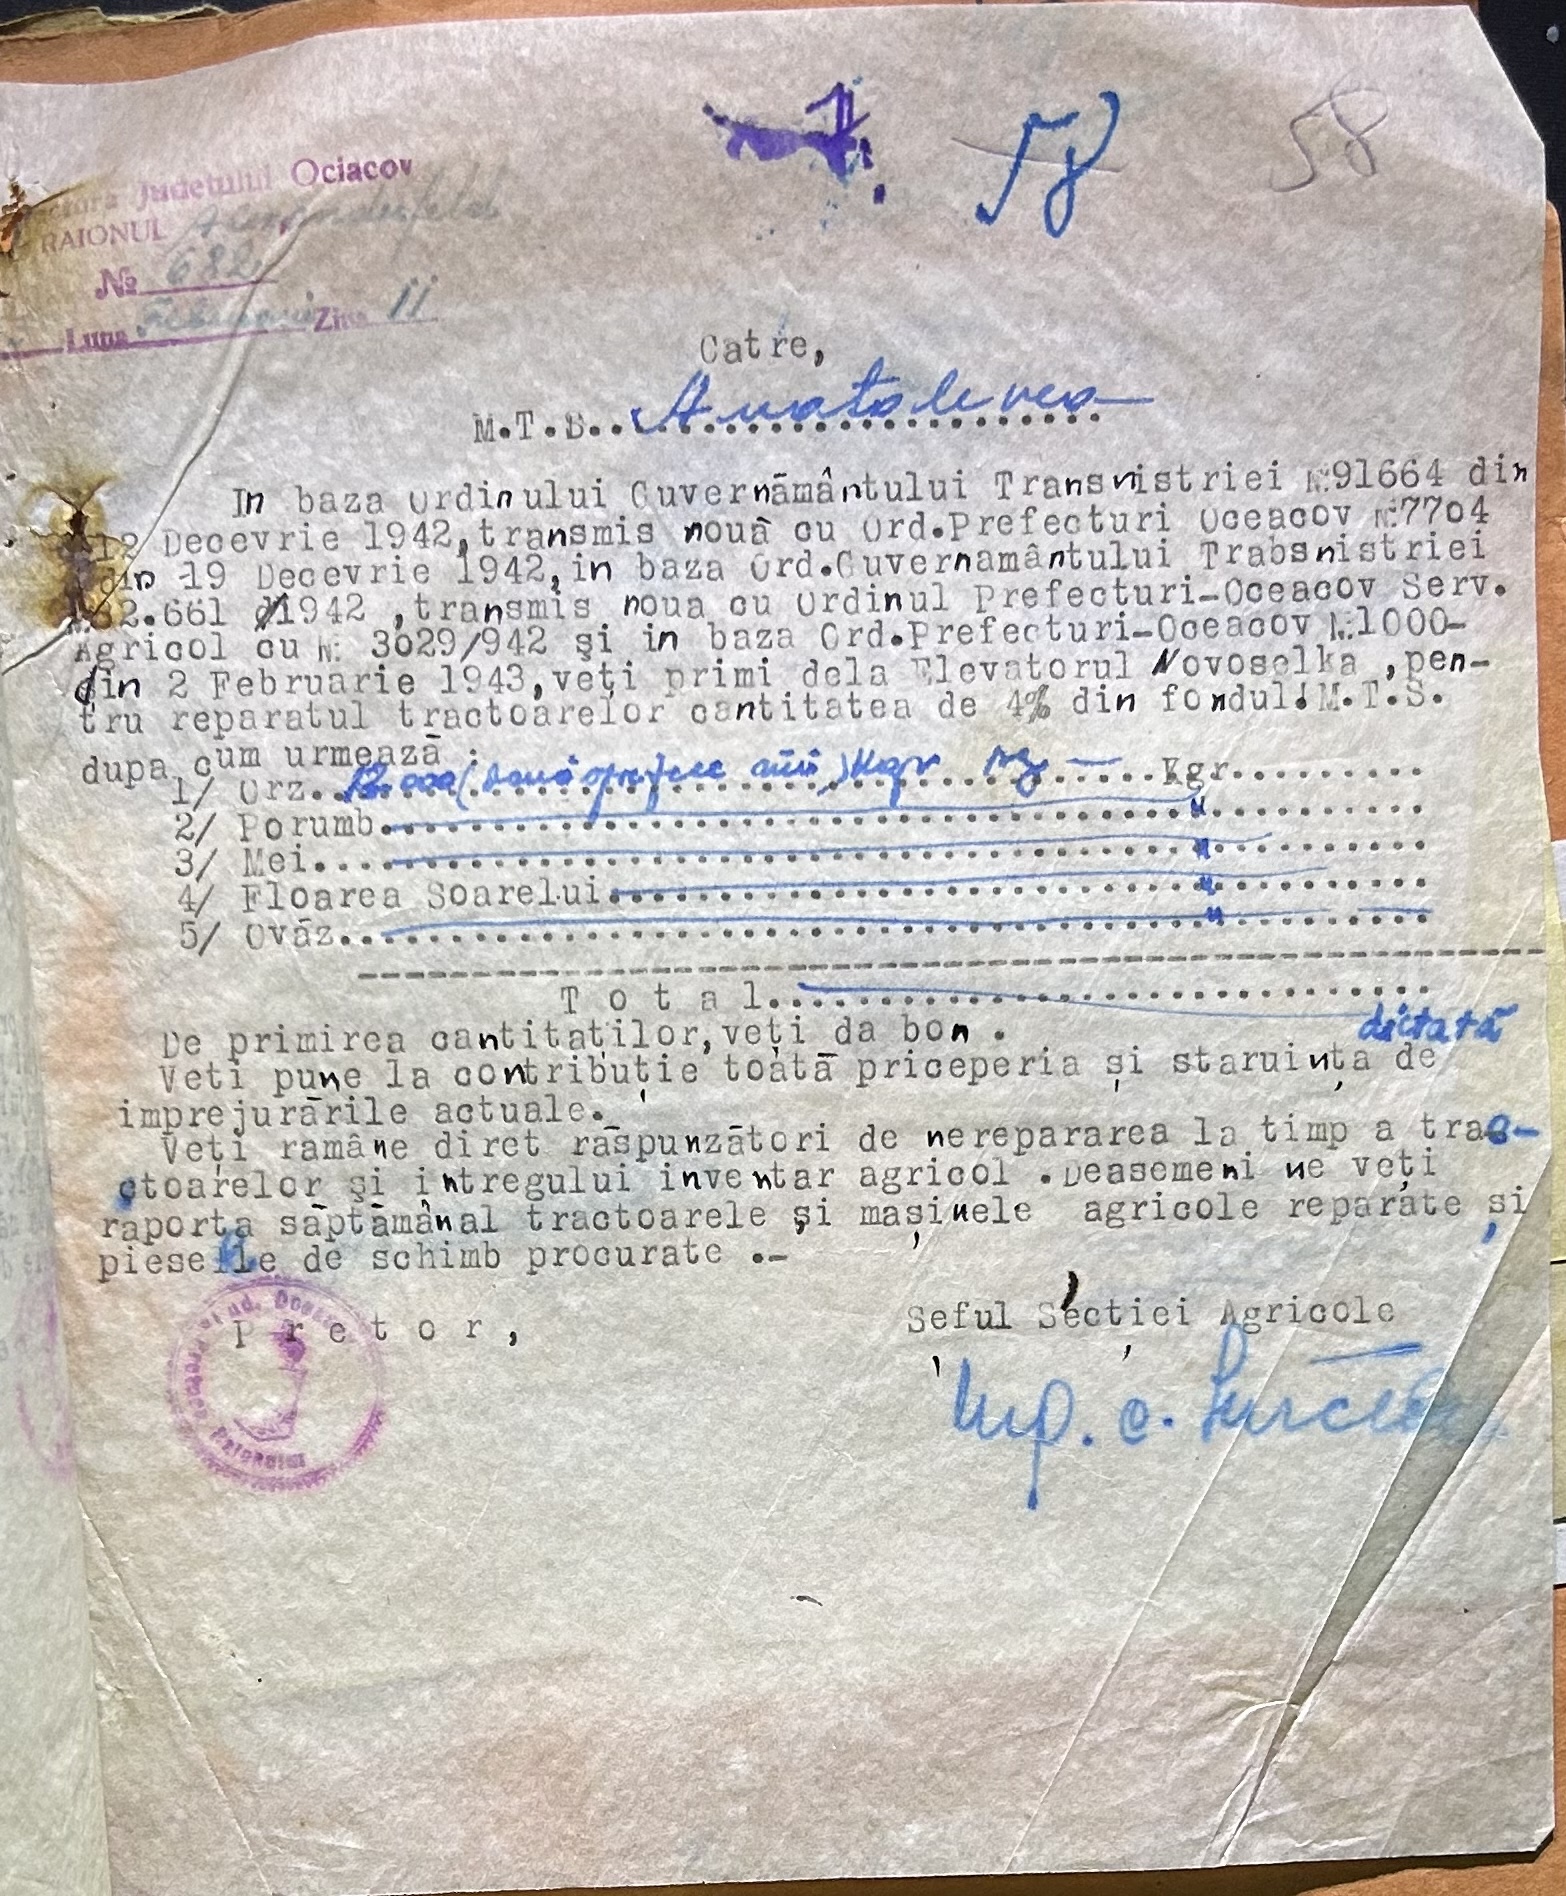 58
58
Judetului Ociacov
RAIONUL
№ 682
Luna Februarie Ziua 11
Catre,
M.T.S. Anatolevca
In baza Ordinului Guvernământului Transnistriei №91664 din
12 Decevrie 1942, transmis nouă cu Ord.Prefecturi Oceacov №7704
din 19 Decevrie 1942, in baza Ord.Guvernamântului Trabsnistriei
2.661 d/1942 ,transmis noua cu Ordinul Prefecturi-Oceacov Serv.
Agricol cu № 3029/942 și in baza Ord.Prefecturi-Oceacov №1000-
din 2 Februarie 1943, veți primi dela Elevatorul Novoselka ,pen-
tru reparatul tractoarelor cantitatea de 4% din fondul M.T.S.
dupa cum urmează :
1/ Orz. 12.000 ( kgr Kgr.
2/ Porumb. "
3/ Mei. "
4/ Floarea Soarelui. "
5/ Ovăz. "
T o t a l.
De primirea cantitatilor, veți da bon .
dictată
Veti pune la contribuție toată priceperia și staruința de
imprejurările actuale.
Veți ramâne diret răspunzători de nerepararea la timp a trac-
ctoarelor și intregului inventar agricol .Deasemeni ne veți
raporta săptămânal tractoarele și mașinele agricole reparate și
piesele de schimb procurate .-
P r e t o r ,
Șeful Secției Agricole